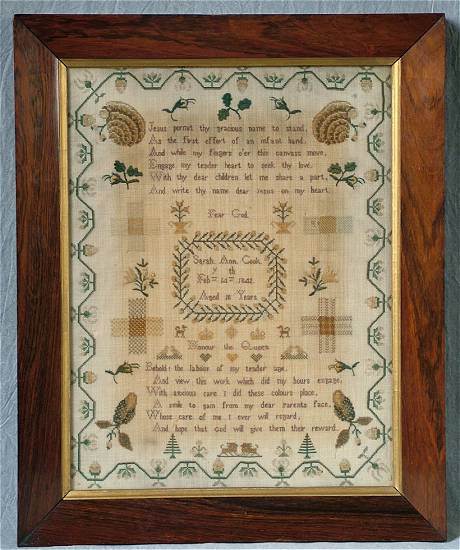 Jesus permit thy gracious name to stand,
As the first effort of an infant hand,
And while my fingers o'er this canvass move,
Engage my tender heart to seek thy love,
With thy dear children let me share a part,
And write thy name dear Jesus on my heart.
Fear God.
Sarah Ann Cook.
Feb y 14 th 1842.
Aged 11 Years.
Honour the Queen
Behold the labour of my tender age,
And view this work which did my hours engage,
With anxious care I did these colours place,
A smile to gain from my dear parents face,
Whose care of me I ever will regard,
And hope that God will give them their reward.